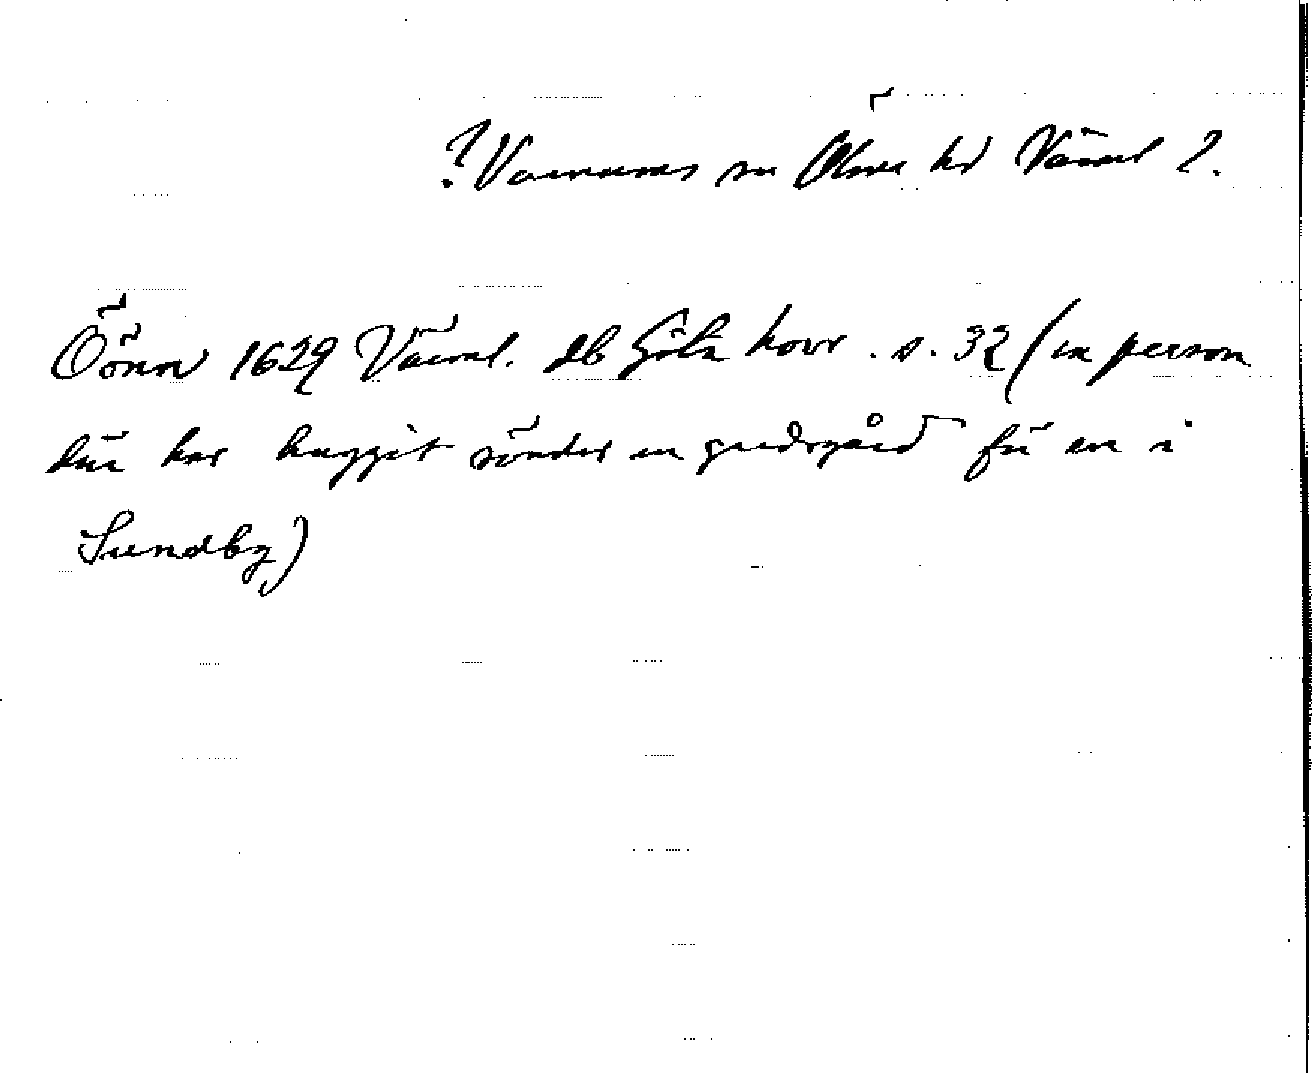 ? Varnums sn Ölme hd Värml ?.
Öönn 1629 Värml. db Göta hovr. s. 32 (en person
här har huggit sönder en gärdsgård för en i
Sundby)